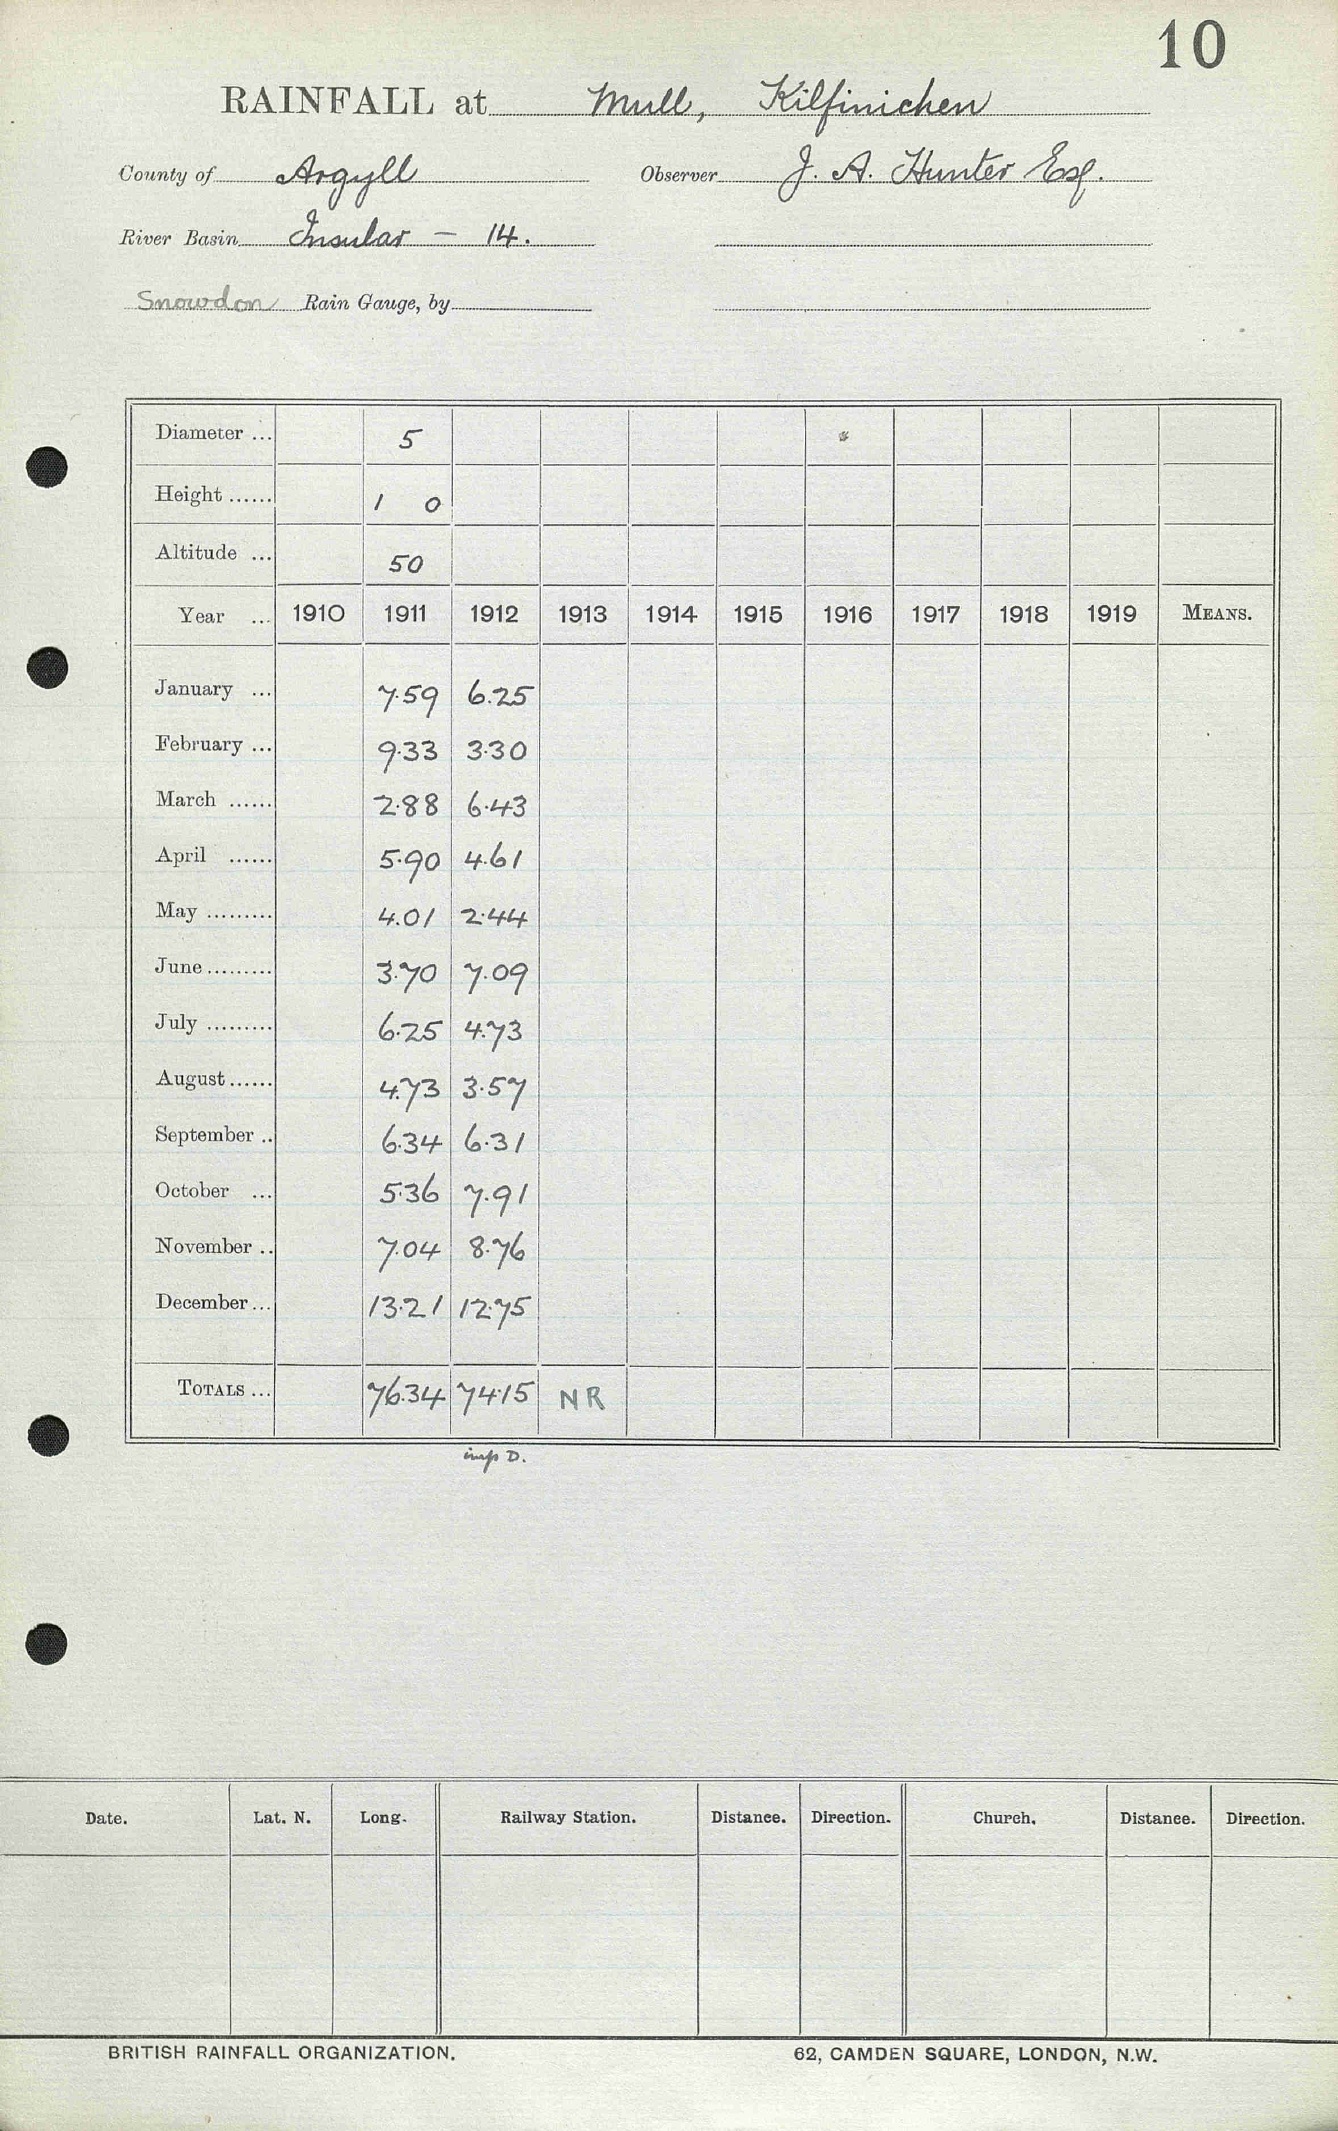 10
RAINFALL at Mull, Kilfinichen
County of Argyll Observer J. A. Hunter Esq.
River Basin Insular — 14.
Snowdon Rain Gauge, by
Diameter ... 5
Height ...... 1 0
Altitude ... 50
Year ... 1910 1911 1912 1913 1914 1915 1916 1917 1918 1919 MEANS.
January ... 7.59 6.25
February ... 9.33 3.30
March ...... 2.88 6.43
April ...... 5.90 4.61
May ......... 4.01 2.44
June ......... 3.70 7.09
July ......... 6.25 4.73
August ...... 4.73 3.57
September .. 6.34 6.31
October ... 5.36 7.91
November .. 7.04 8.76
December ... 13.21 12.75
TOTALS ... 76.34 74.15 NR
imp D.
Date. Lat. N. Long. Railway Station. Distance. Direction. Church. Distance. Direction.
BRITISH RAINFALL ORGANIZATION. 62, CAMDEN SQUARE, LONDON, N.W.